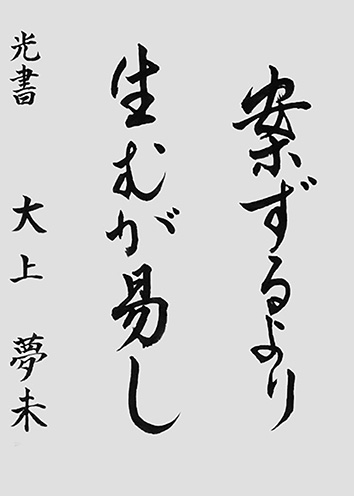 案ずるより
生むが易し
光書 大上 夢未